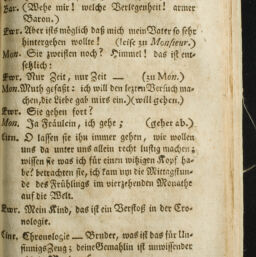 Bar. (Wehe mir! welche Verlegenheit! armer
Baron.)
Ewr. Aber ists möglich daß mich mein Vater so sehr
hintergehen wollte! (leise zu Monsieur.)
Mon. Sie zweiflen noch? Himmel! das ist ent-
setzlich:
Ewr. Nur Zeit, nur Zeit — (zu Mon.)
Mon. Muth gefaßt: ich will den lezten Versuch ma-
chen, die Liebe gab mirs ein.) (will gehen.)
Ewr. Sie gehen fort?
Mon. Ja Fräulein, ich gehe; (geher ab.)
O lassen sie ihn immer gehen, wir wollen
uns da unter uns allein recht lustig machen;
wissen sie was ich für einen witzigen Kopf ha-
be? betrachten sie, ich kam um die Mittagstun-
de des Frühlings im vierzehenden Monathe
auf die Welt.
Ewr. Mein Kind, das ist ein Verstoß in der Cro-
nologie.
Chronologie — Bruder, was ist das für Un-
sinnigs Zeug; deine Gemahlin ist unwissender